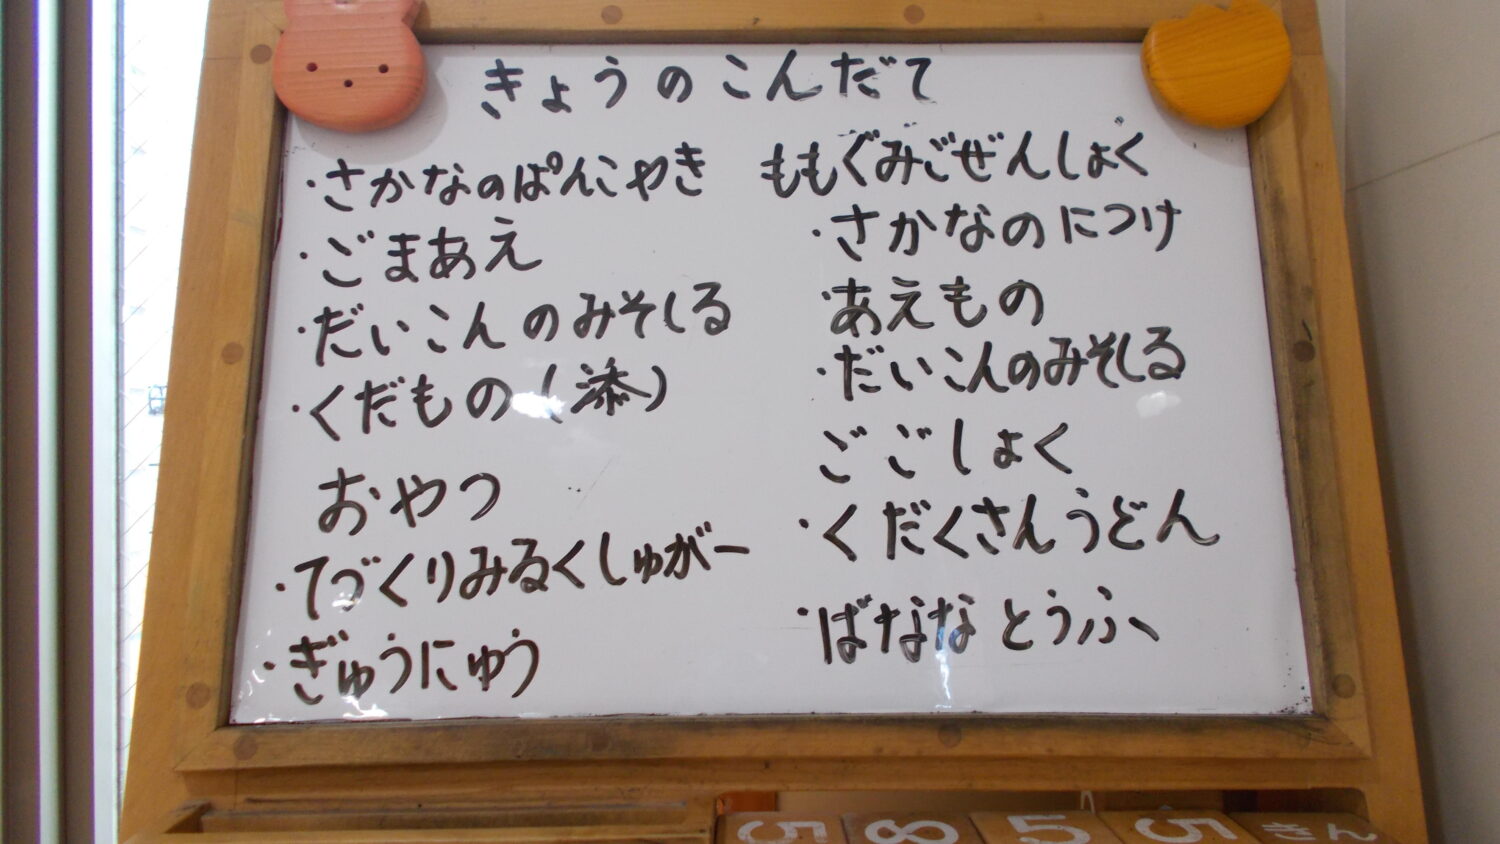 きょうのこんだて
・さかなのぱんこやき
・ごまあえ
・だいこんのみそしる
・くだもの(添)
おやつ
・てづくりみるくしゅがー
・ぎゅうにゅう
ももぐみごぜんしょく
・さかなのにつけ
・あえもの
・だいこんのみそしる
ごごしょく
・くだくさんうどん
・ばななとうふ
5 8 5 5 きん